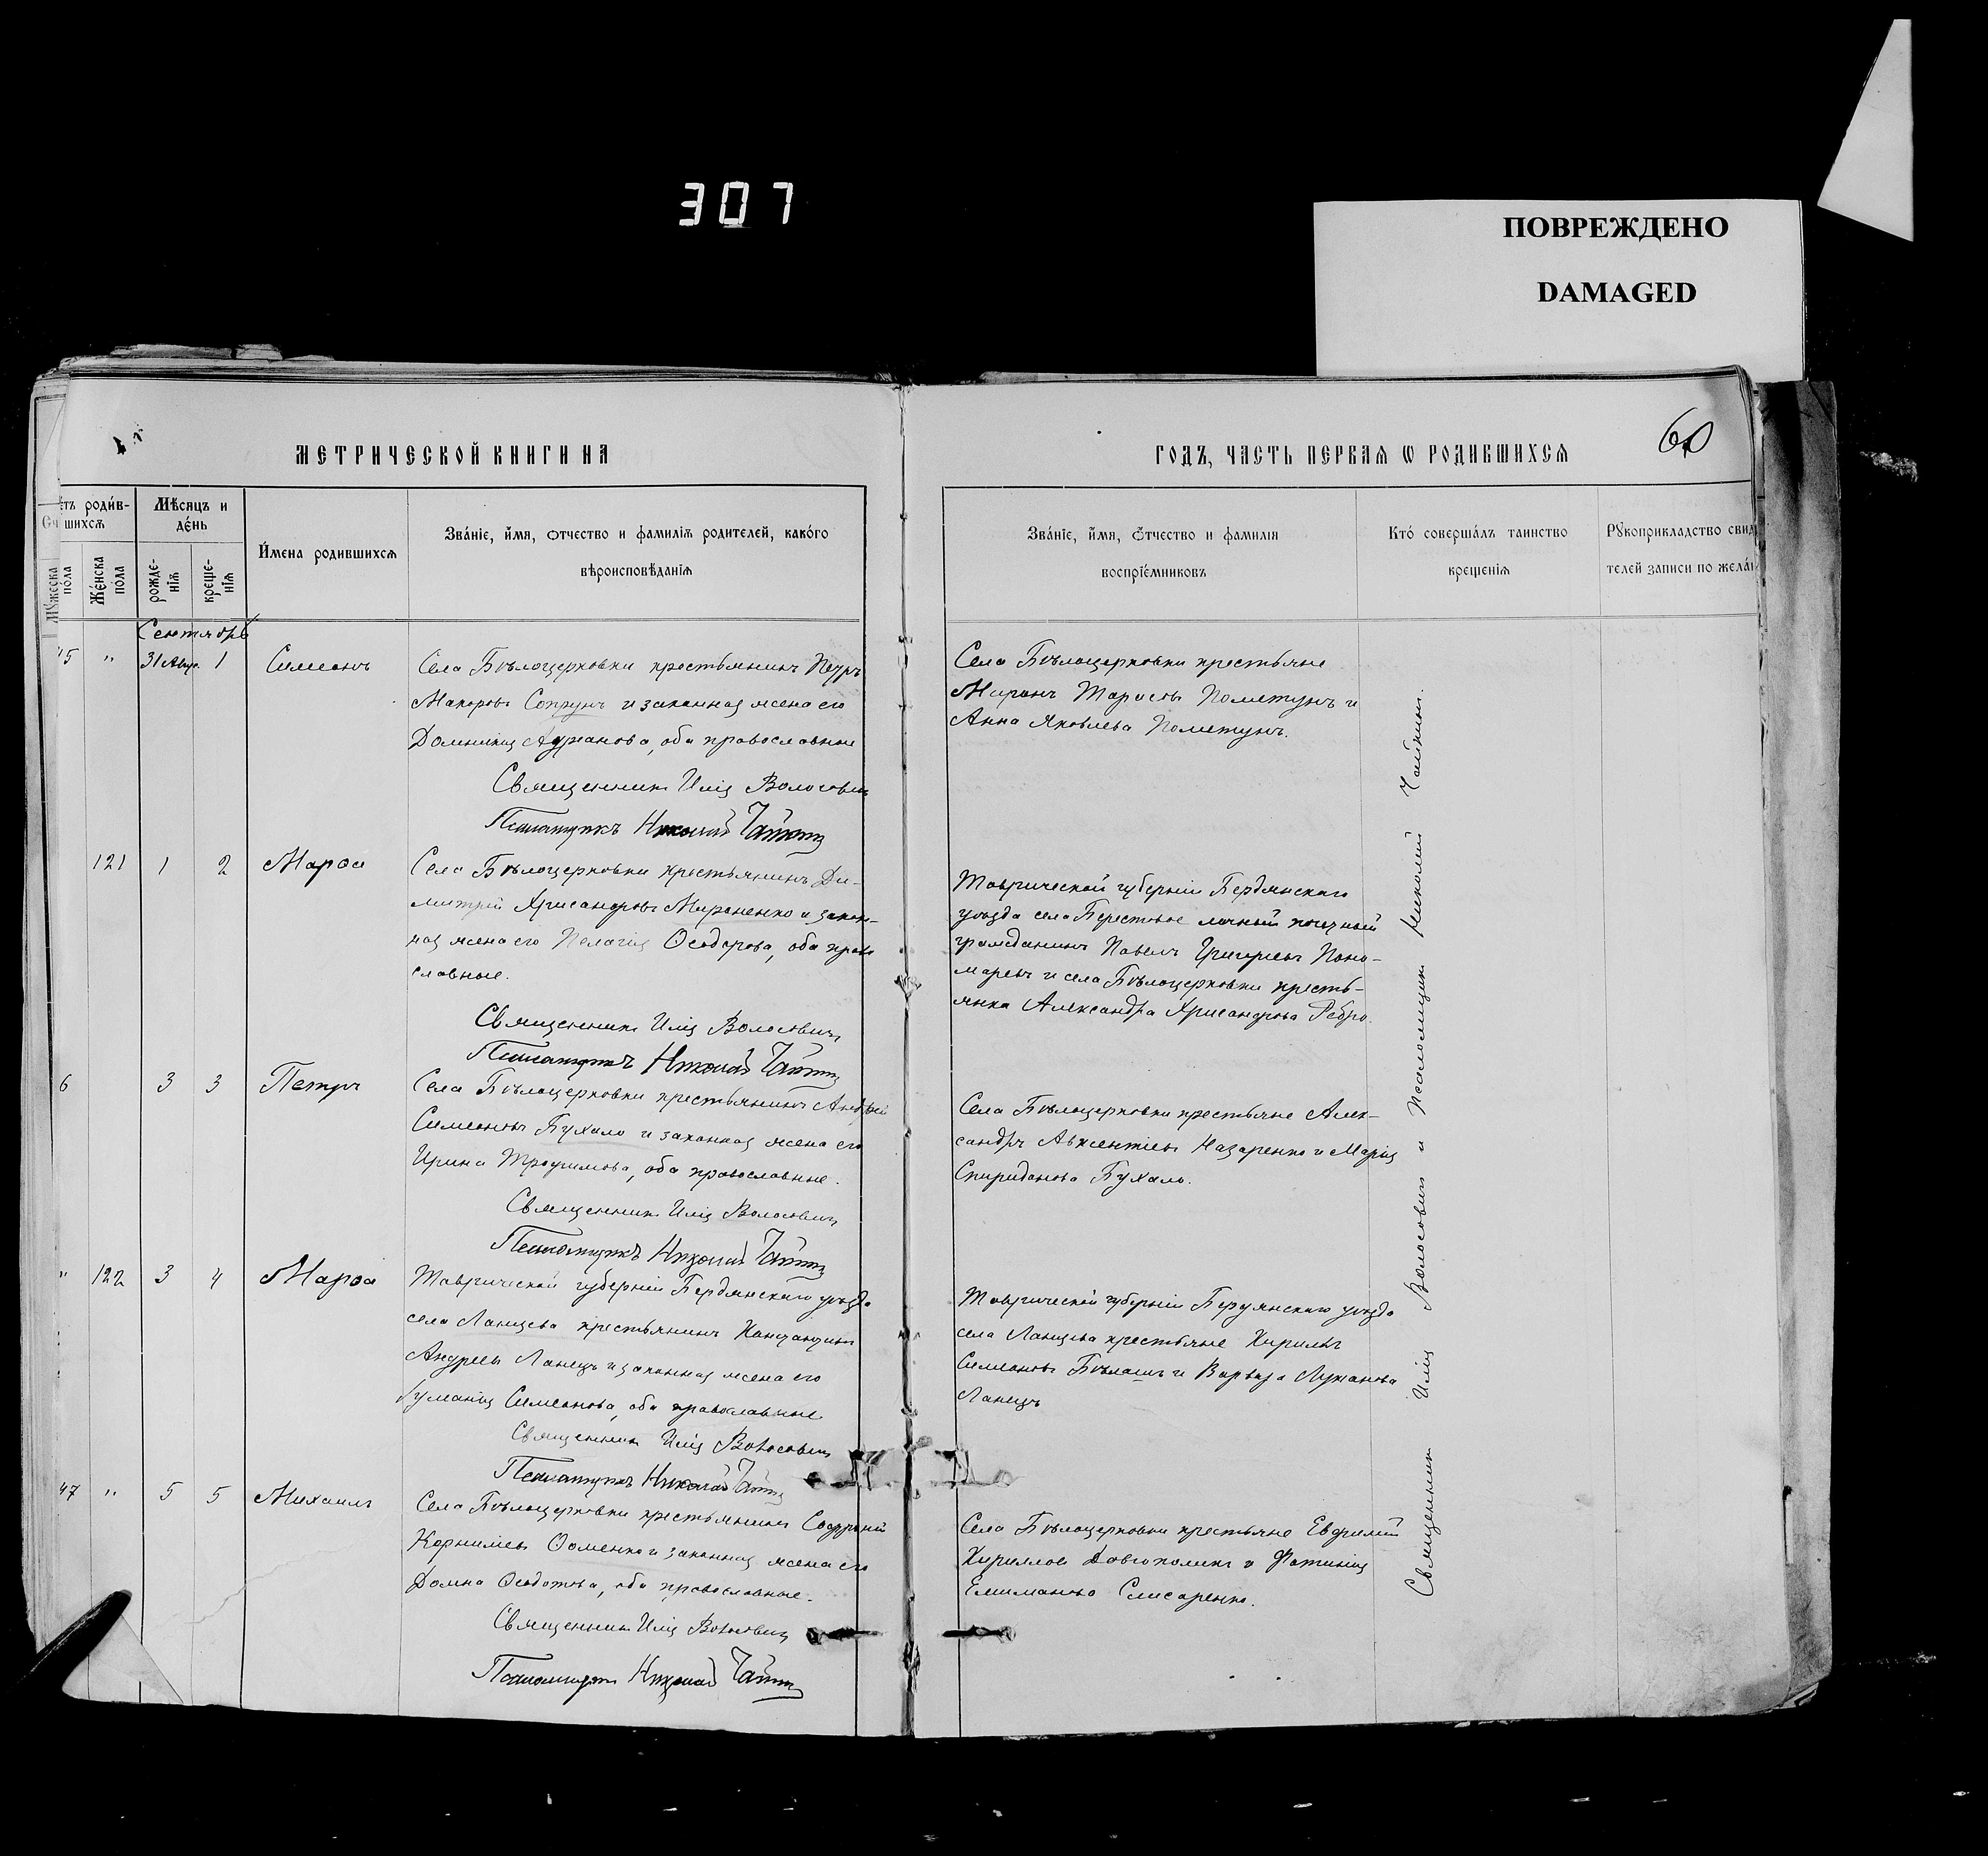 307
ПОВРЕЖДЕНО
DAMAGED
МЕТРИЧЕСКОЙ КНИГИ НА
ГОДЪ, ЧАСТЬ ПЕРВАЯ Ѡ РОДИВШИХСЯ
60
Счетъ родив-
шихся
Мужеска
пола
Женска
пола
Мѣсяцъ и
день
рожде-
нія
креще-
нія
Имена родившихся
Званіе, имя, отчество и фамилія родителей, какого
вѣроисповѣданія
Званіе, имя, отчество и фамилія
воспріемниковъ
Кто совершалъ таинство
крещенія
Рукоприкладство свид
телей записи по жела
Сентябрь
15 " 31 Авг. 1 Симеонъ
Села Бѣлоцерковки крестьянинъ Петръ
Макаровъ Сопрунъ и законная жена его
Домникія, оба православные
Священникъ Илія Волосовичъ
Псаломщикъ Николай Чайкинъ
Села Бѣлоцерковки крестьяне
Миронъ Тарасовъ Пометунъ и
Анна Яковлева Пометунъ.
121 1 2 Марѳа
Села Бѣлоцерковки крестьянинъ Ди-
митрій Хрисанфовъ Мироненко и закон-
ная жена его Пелагія Ѳеодорова, оба право
славные.
Священникъ Илія Волосовичъ
Псаломщикъ Николай Чайкинъ
Таврической губерніи Бердянскаго
уѣзда села Берестовое личный почетный
гражданинъ Павелъ Григорьевъ Поно-
маревъ и села Бѣлоцерковки кресть-
янка Александра Хрисанфова Ребро.
6 3 3 Петръ
Села Бѣлоцерковки крестьянинъ Андрей
Симеоновъ Бухало и законная жена его
Ирина Трофимова, оба православные.
Священникъ Илія Волосовичъ
Псаломщикъ Николай Чайкинъ
Села Бѣлоцерковки крестьяне Алек-
сандръ Авксентіевъ Назаренко и Марія
Спиридонова Бухало.
" 122 3 4 Марѳа
Таврической губерніи Бердянскаго уѣзда
села Ланцева крестьянинъ Константинъ
Андреевъ Ланецъ и законная жена его
Симеонова, оба православные
Священникъ Илія Волосовичъ
Псаломщикъ Николай Чайкинъ
Таврической губерніи Бердянскаго уѣзда
села Ланцева крестьяне Кириллъ
Симеоновъ Бѣлашъ и Варвара
Ланецъ
47 " 5 5 Михаилъ
Села Бѣлоцерковки крестьянинъ Софроній
Корниліевъ Ѳоменко и законная жена его
Домна Ѳеодотова, оба православные.
Священникъ Илія Волосовичъ
Псаломщикъ Николай Чайкинъ
Села Бѣлоцерковки крестьяне Евфимій
Кирилловъ Довгополикъ и Фотинія
Слисаренко.
Священникъ Илія Волосовичъ и Псаломщикъ Николай Чайкинъ.